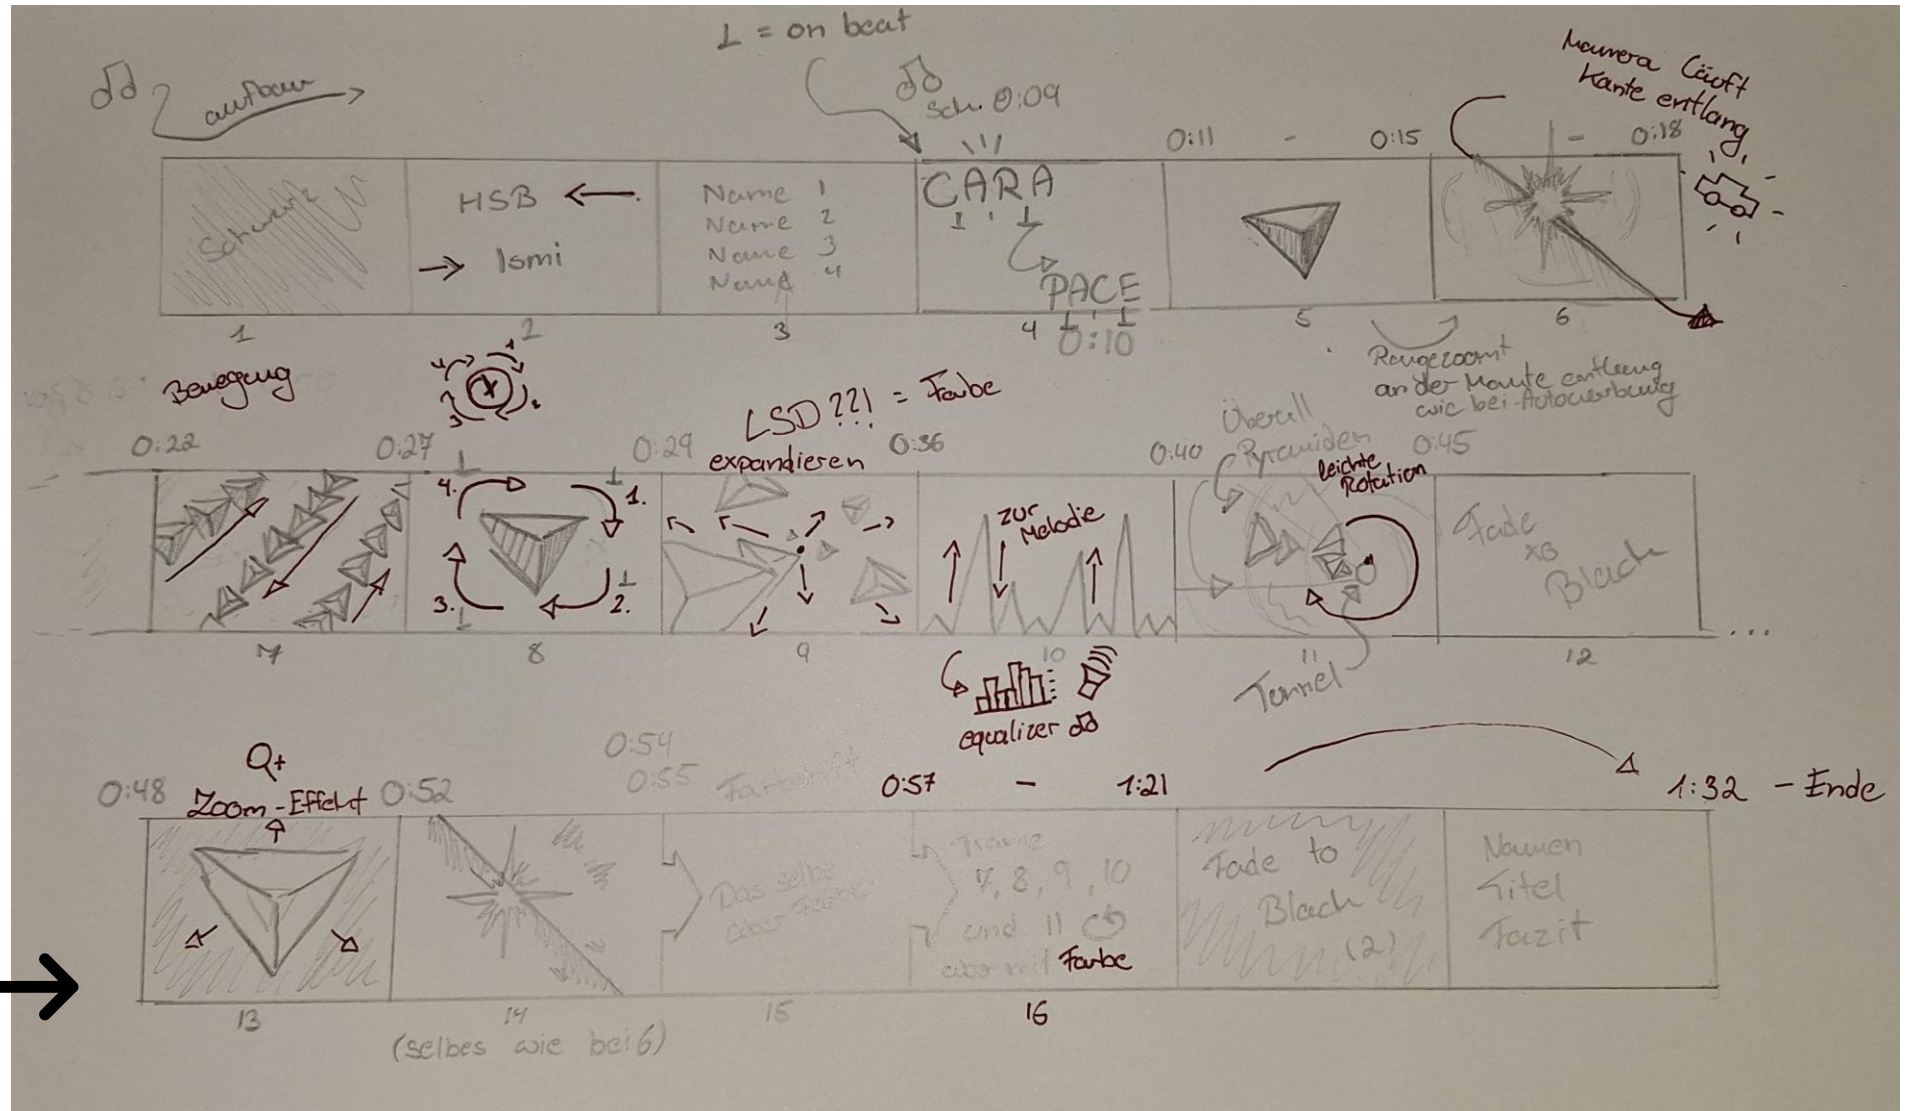 ⊥ = on beat
aufbau
Sch. 0:09
Kamera läuft
Kante entlang
0:11 - 0:15 - 0:18
Schwarz
HSB
Ismi
Name 1
Name 2
Name 3
Name 4
CARA
PACE
0:10
1 2 3 4 5 6
Rangezoomt
an der Kante entlang
wie bei Autowerbung
Bewegung
4 1 2 3
LSD??! = Farbe
expandieren
Überall
Pyramiden
leichte
Rotation
0:22 0:27 0:29 0:36 0:40 0:45
4. 1.
3. 2.
zur
Melodie
Fade
to
Black
...
7 8 9 10 11 12
equalizer
Tunnel
Q+
Zoom-Effekt
0:48 0:52 0:54
0:55
0:57 - 1:21
1:32 - Ende
Das selbe
aber Farbe
Frame
7, 8, 9, 10
und 11
aber mit Farbe
Fade to
Black
(2)
Namen
Titel
Fazit
13 14 15 16
(selbes wie bei 6)